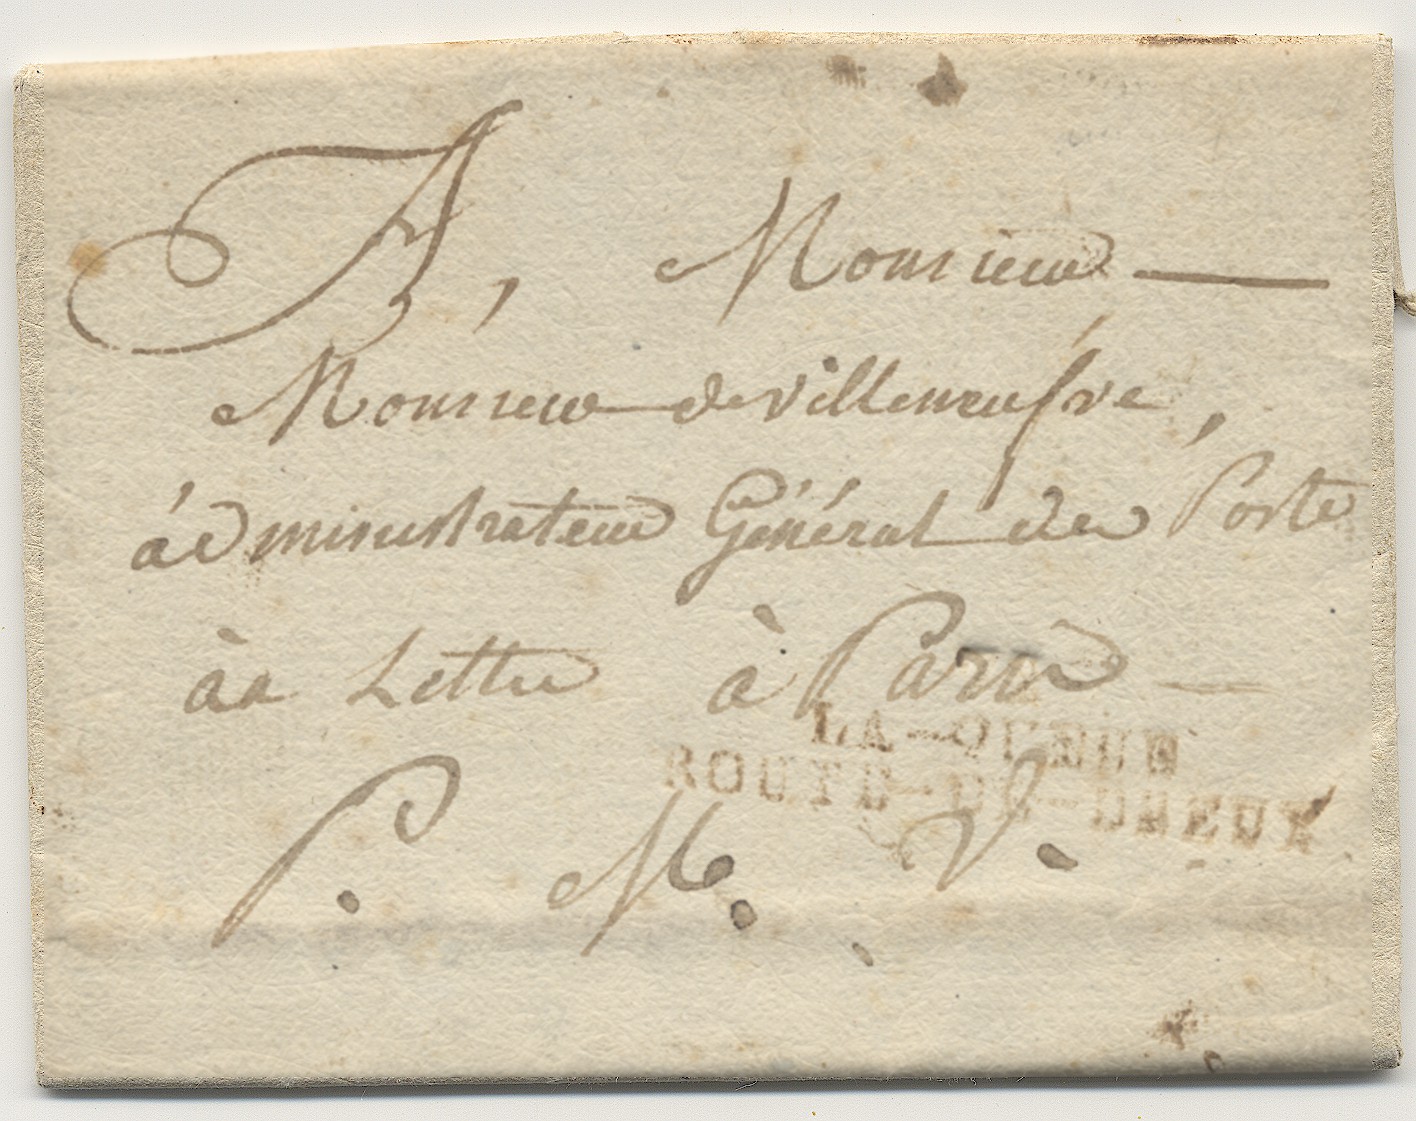 A, Monsieur
Monsieur de villeneufve,
administrateur Général des Poste
àa Lettre à Paris
LA-QUEUE
ROUTE-DE-DREUX
P. M. V.